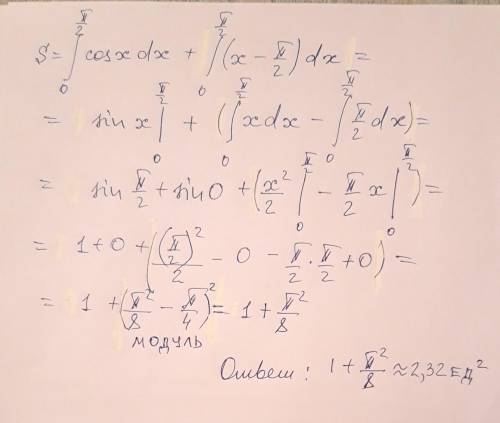 S = ∫₀^(π/2) cosx dx + ∫₀^(π/2) (x − π/2) dx =
= sin x |₀^(π/2) + (∫₀^(π/2) x dx − ∫₀^(π/2) π/2 dx) =
= sin π/2 + sin 0 + (x²/2 |₀^(π/2) − π/2 x |₀^(π/2)) =
= 1 + 0 + ((π/2)²/2 − 0 − π/2 · π/2 + 0) =
= 1 + (π²/8 − π²/4) = 1 + π²/8
модуль
Ответ: 1 + π²/8 ≈ 2,32 ед²